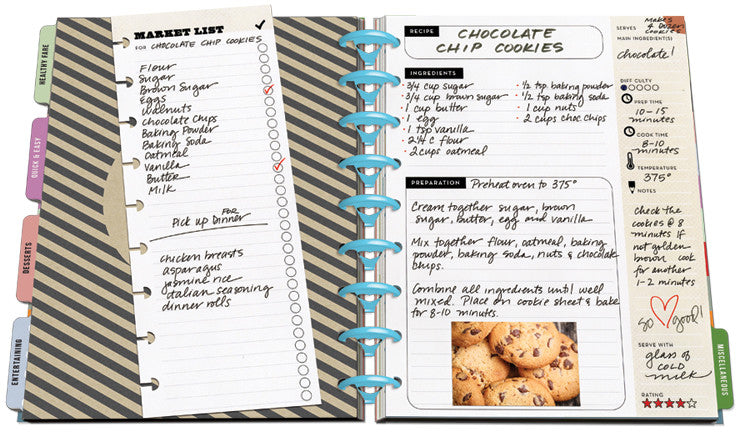 HEALTHY FARE
QUICK & EASY
DESSERTS
ENTERTAINING
MARKET LIST
FOR CHOCOLATE CHIP COOKIES
Flour
Sugar
Brown Sugar
Eggs
Walnuts
Chocolate Chips
Baking Powder
Baking Soda
Oatmeal
Vanilla
Butter
Milk
Pick up FOR Dinner
chicken breasts
asparagus
jasmine rice
italian seasoning
dinner rolls
RECIPE
CHOCOLATE
CHIP COOKIES
INGREDIENTS
3/4 cup sugar
3/4 cup brown sugar
1 cup butter
1 egg
1 tsp vanilla
2 1/4 c flour
2 cups oatmeal
1/2 tsp baking powder
1/2 tsp baking soda
1 cup nuts
2 cups choc chips
PREPARATION Preheat oven to 375°
Cream together sugar, brown
sugar, butter, egg and vanilla
Mix together flour, oatmeal, baking
powder, baking soda, nuts & chocolate
chips.
Combine all ingredients until well
mixed. Place on cookie sheet & bake
for 8-10 minutes.
SERVES Makes
4 Dozen
Cookies
MAIN INGREDIENT(S)
chocolate!
DIFFICULTY
PREP TIME
10-15
minutes
COOK TIME
8-10
minutes
TEMPERATURE
375°
NOTES
check the
cookies @ 8
minutes if
not golden
brown cook
for another
1-2 minutes
so good!
SERVE WITH
glass of
COLD
milk
RATING
MISCELLANEOUS